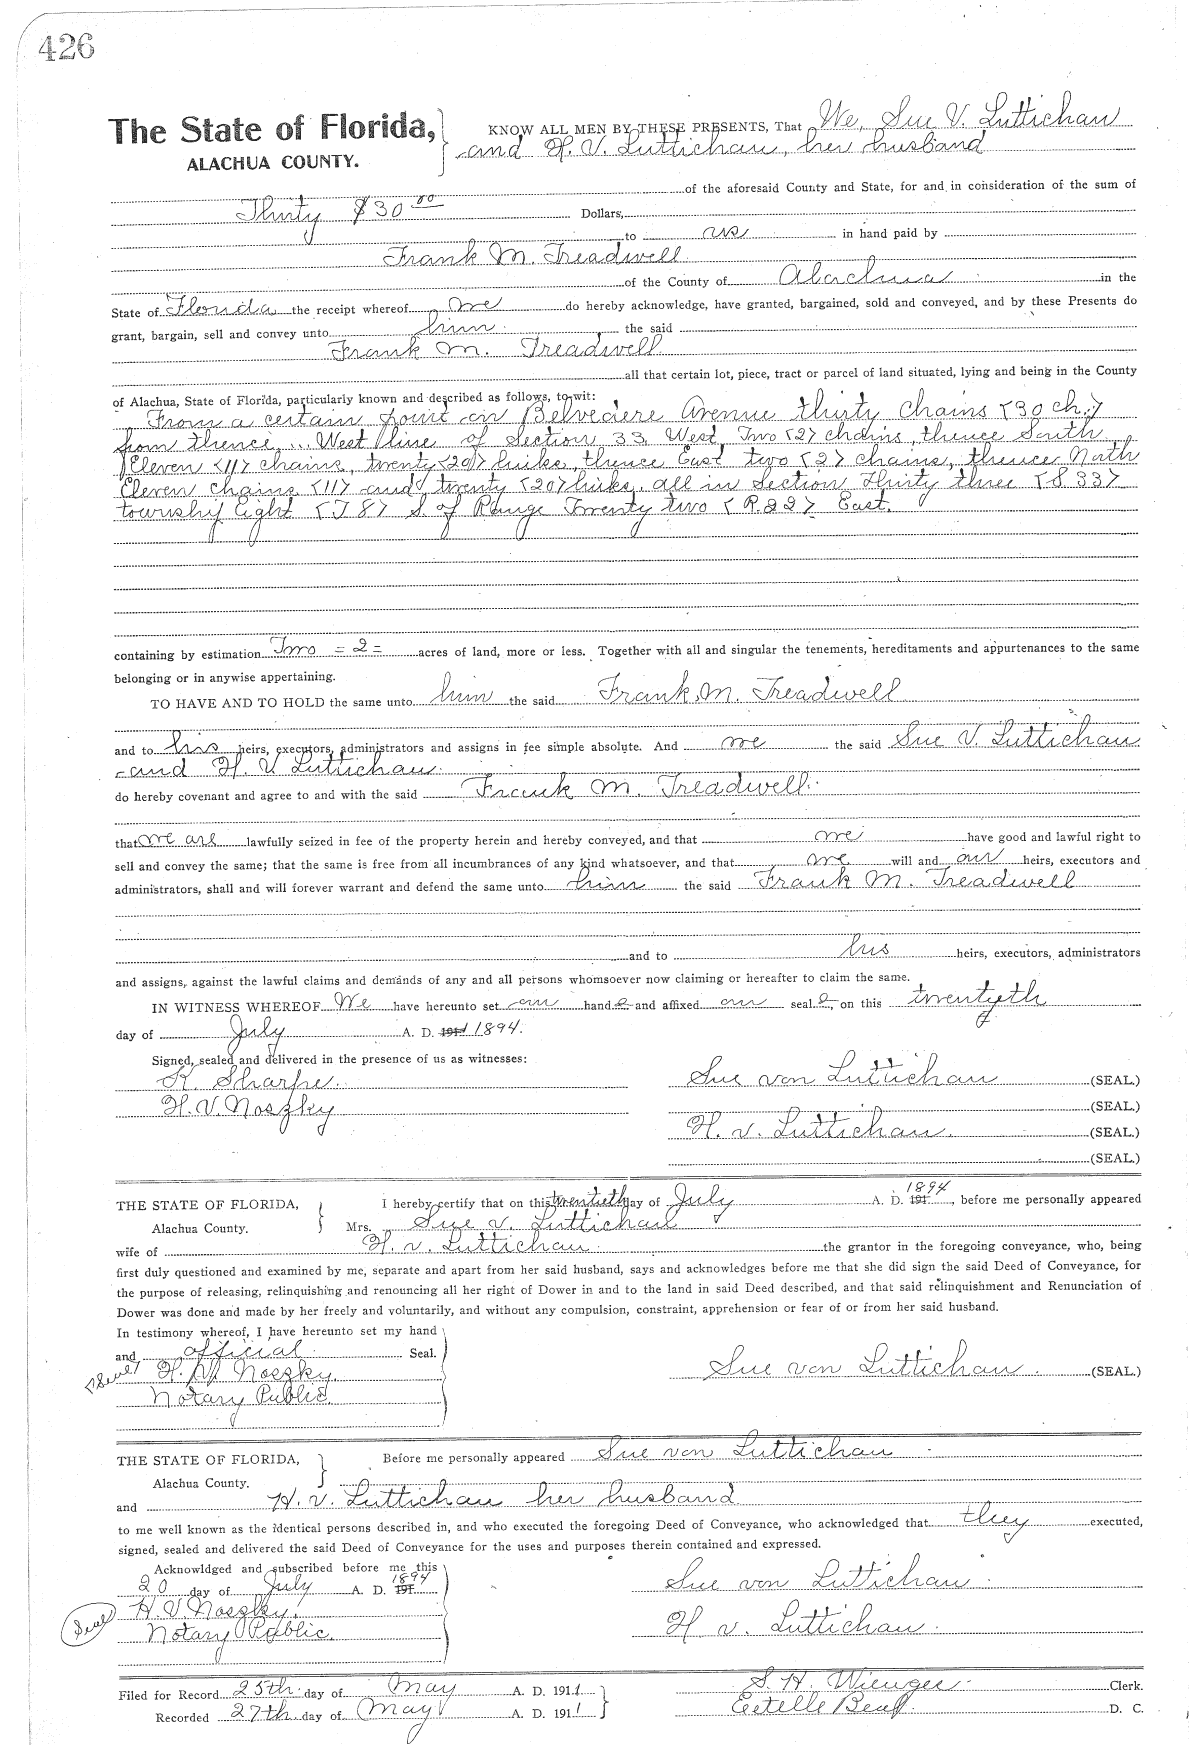 426
The State of Florida,
ALACHUA COUNTY.
KNOW ALL MEN BY THESE PRESENTS, That We, Sue V. Luttichau
and H. V. Luttichau, her husband
of the aforesaid County and State, for and in consideration of the sum of
Thirty $30 00 Dollars,
to us in hand paid by
Frank M. Treadwell
of the County of Alachua in the
State of Florida the receipt whereof we do hereby acknowledge, have granted, bargained, sold and conveyed, and by these Presents do
grant, bargain, sell and convey unto him the said
Frank M. Treadwell
all that certain lot, piece, tract or parcel of land situated, lying and being in the County
of Alachua, State of Florida, particularly known and described as follows, to wit:
From a certain point on Belvedere Avenue thirty chains <30 ch.>
from thence... West line of Section 33 West, Two <2> chains, thence South
Eleven <11> chains, twenty <20> links, thence East two <2> chains, thence North
Eleven chains <11> and twenty <20> links, all in Section Thirty three <S 33>
township Eight <T 8> S. of Range Twenty two <R 22> East.
containing by estimation Two = 2 = acres of land, more or less. Together with all and singular the tenements, hereditaments and appurtenances to the same
belonging or in anywise appertaining.
TO HAVE AND TO HOLD the same unto him the said Frank M. Treadwell
and to his heirs, executors, administrators and assigns in fee simple absolute. And we the said Sue V. Luttichau
and H. V. Luttichau
do hereby covenant and agree to and with the said Frank M. Treadwell
that we are lawfully seized in fee of the property herein and hereby conveyed, and that we have good and lawful right to
sell and convey the same; that the same is free from all incumbrances of any kind whatsoever, and that we will and our heirs, executors and
administrators, shall and will forever warrant and defend the same unto him the said Frank M. Treadwell
and to his heirs, executors, administrators
and assigns, against the lawful claims and demands of any and all persons whomsoever now claiming or hereafter to claim the same.
IN WITNESS WHEREOF We have hereunto set our hand s and affixed our seal s, on this twentyeth
day of July A. D. 191 1894.
Signed, sealed and delivered in the presence of us as witnesses:
K. Sharpe. Sue von Luttichau (SEAL.)
H. V. Noszky (SEAL.)
H. v. Luttichau. (SEAL.)
(SEAL.)
THE STATE OF FLORIDA,
Alachua County.
I hereby certify that on this twentieth day of July A. D. 191 1894, before me personally appeared
Mrs. Sue v. Luttichau
wife of H. v. Luttichau the grantor in the foregoing conveyance, who, being
first duly questioned and examined by me, separate and apart from her said husband, says and acknowledges before me that she did sign the said Deed of Conveyance, for
the purpose of releasing, relinquishing and renouncing all her right of Dower in and to the land in said Deed described, and that said relinquishment and Renunciation of
Dower was done and made by her freely and voluntarily, and without any compulsion, constraint, apprehension or fear of or from her said husband.
In testimony whereof, I have hereunto set my hand
and official Seal.
<Seal> H. V. Noszky. Sue von Luttichau. (SEAL.)
Notary Public.
THE STATE OF FLORIDA,
Alachua County.
Before me personally appeared Sue von Luttichau
and H. v. Luttichau her husband
to me well known as the identical persons described in, and who executed the foregoing Deed of Conveyance, who acknowledged that they executed,
signed, sealed and delivered the said Deed of Conveyance for the uses and purposes therein contained and expressed.
Acknowldged and subscribed before me this
20 day of July A. D. 191 1894 Sue von Luttichau
Seal H. V. Noszky.
Notary Public. H v. Luttichau.
Filed for Record 25th day of May A. D. 1911 S. H. Wienges Clerk.
Recorded 27th day of May A. D. 1911 D. C.